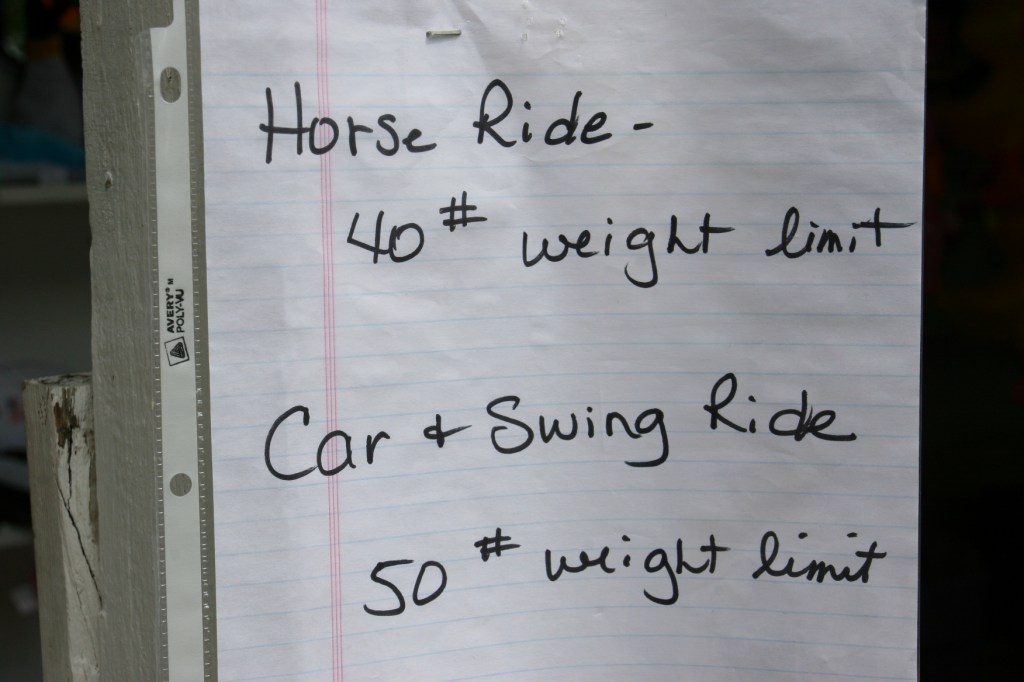 Horse Ride -
40# weight limit
Car & Swing Ride
50# weight limit
AVERY®
POLY-VU